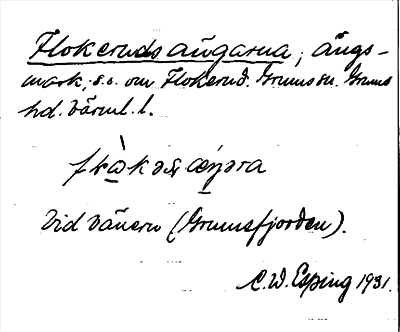 Flokerudsängarna, ängs-
mark, s.o. om Flokerud. Grums sn. Grums
hd. Värml. l.
Vid Vänern (Grumsfjorden).
C. W. Esping 1931.